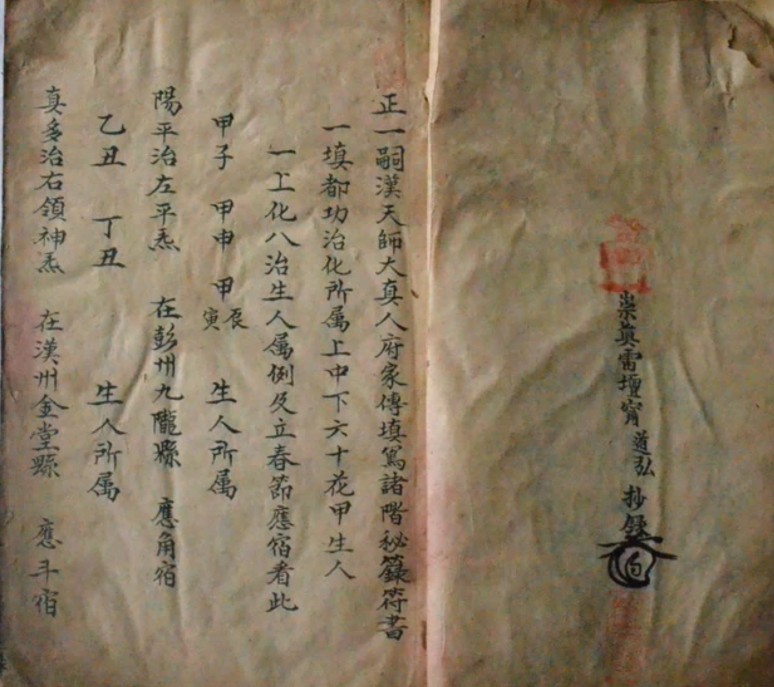 崇真雷壇甯道弘抄錄
正一嗣漢天師大真人府家傳填寫諸階秘籙符書
一填都功治化所属上中下六十花甲生人
一上化八治生人属例及立春節應宿看此
甲子 甲申 甲寅辰 生人所属
陽平治左平炁 在彭州九隴縣 應角宿
乙丑 丁丑 生人所属
真多治右領神炁 在漢州金堂縣 應斗宿